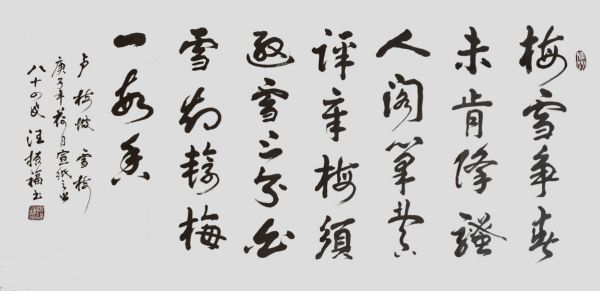 梅雪争春
未肯降騷
人阁笔費
評章梅須
逊雪三分白
雪却輸梅
一段香
卢梅坡 雪梅
庚子年荷月宣纸之乡
八十四岁 汪振福书